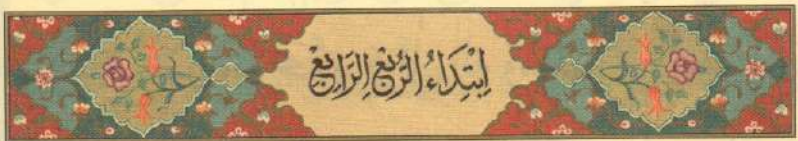 اِبْتِدَاءُ الرُّبْعِ الرَّابِعْ